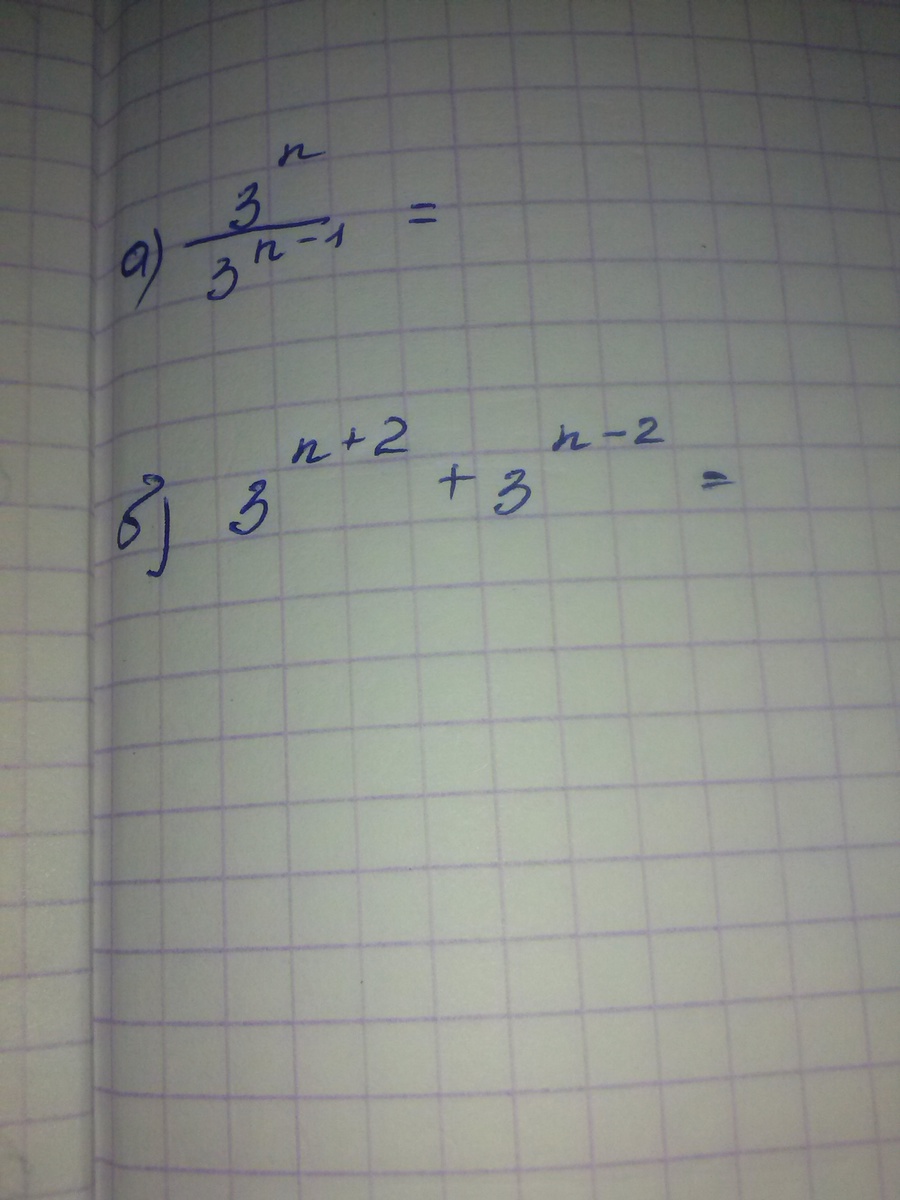 а) 3^n / 3^{n-1} =
б) 3^{n+2} + 3^{n-2} =